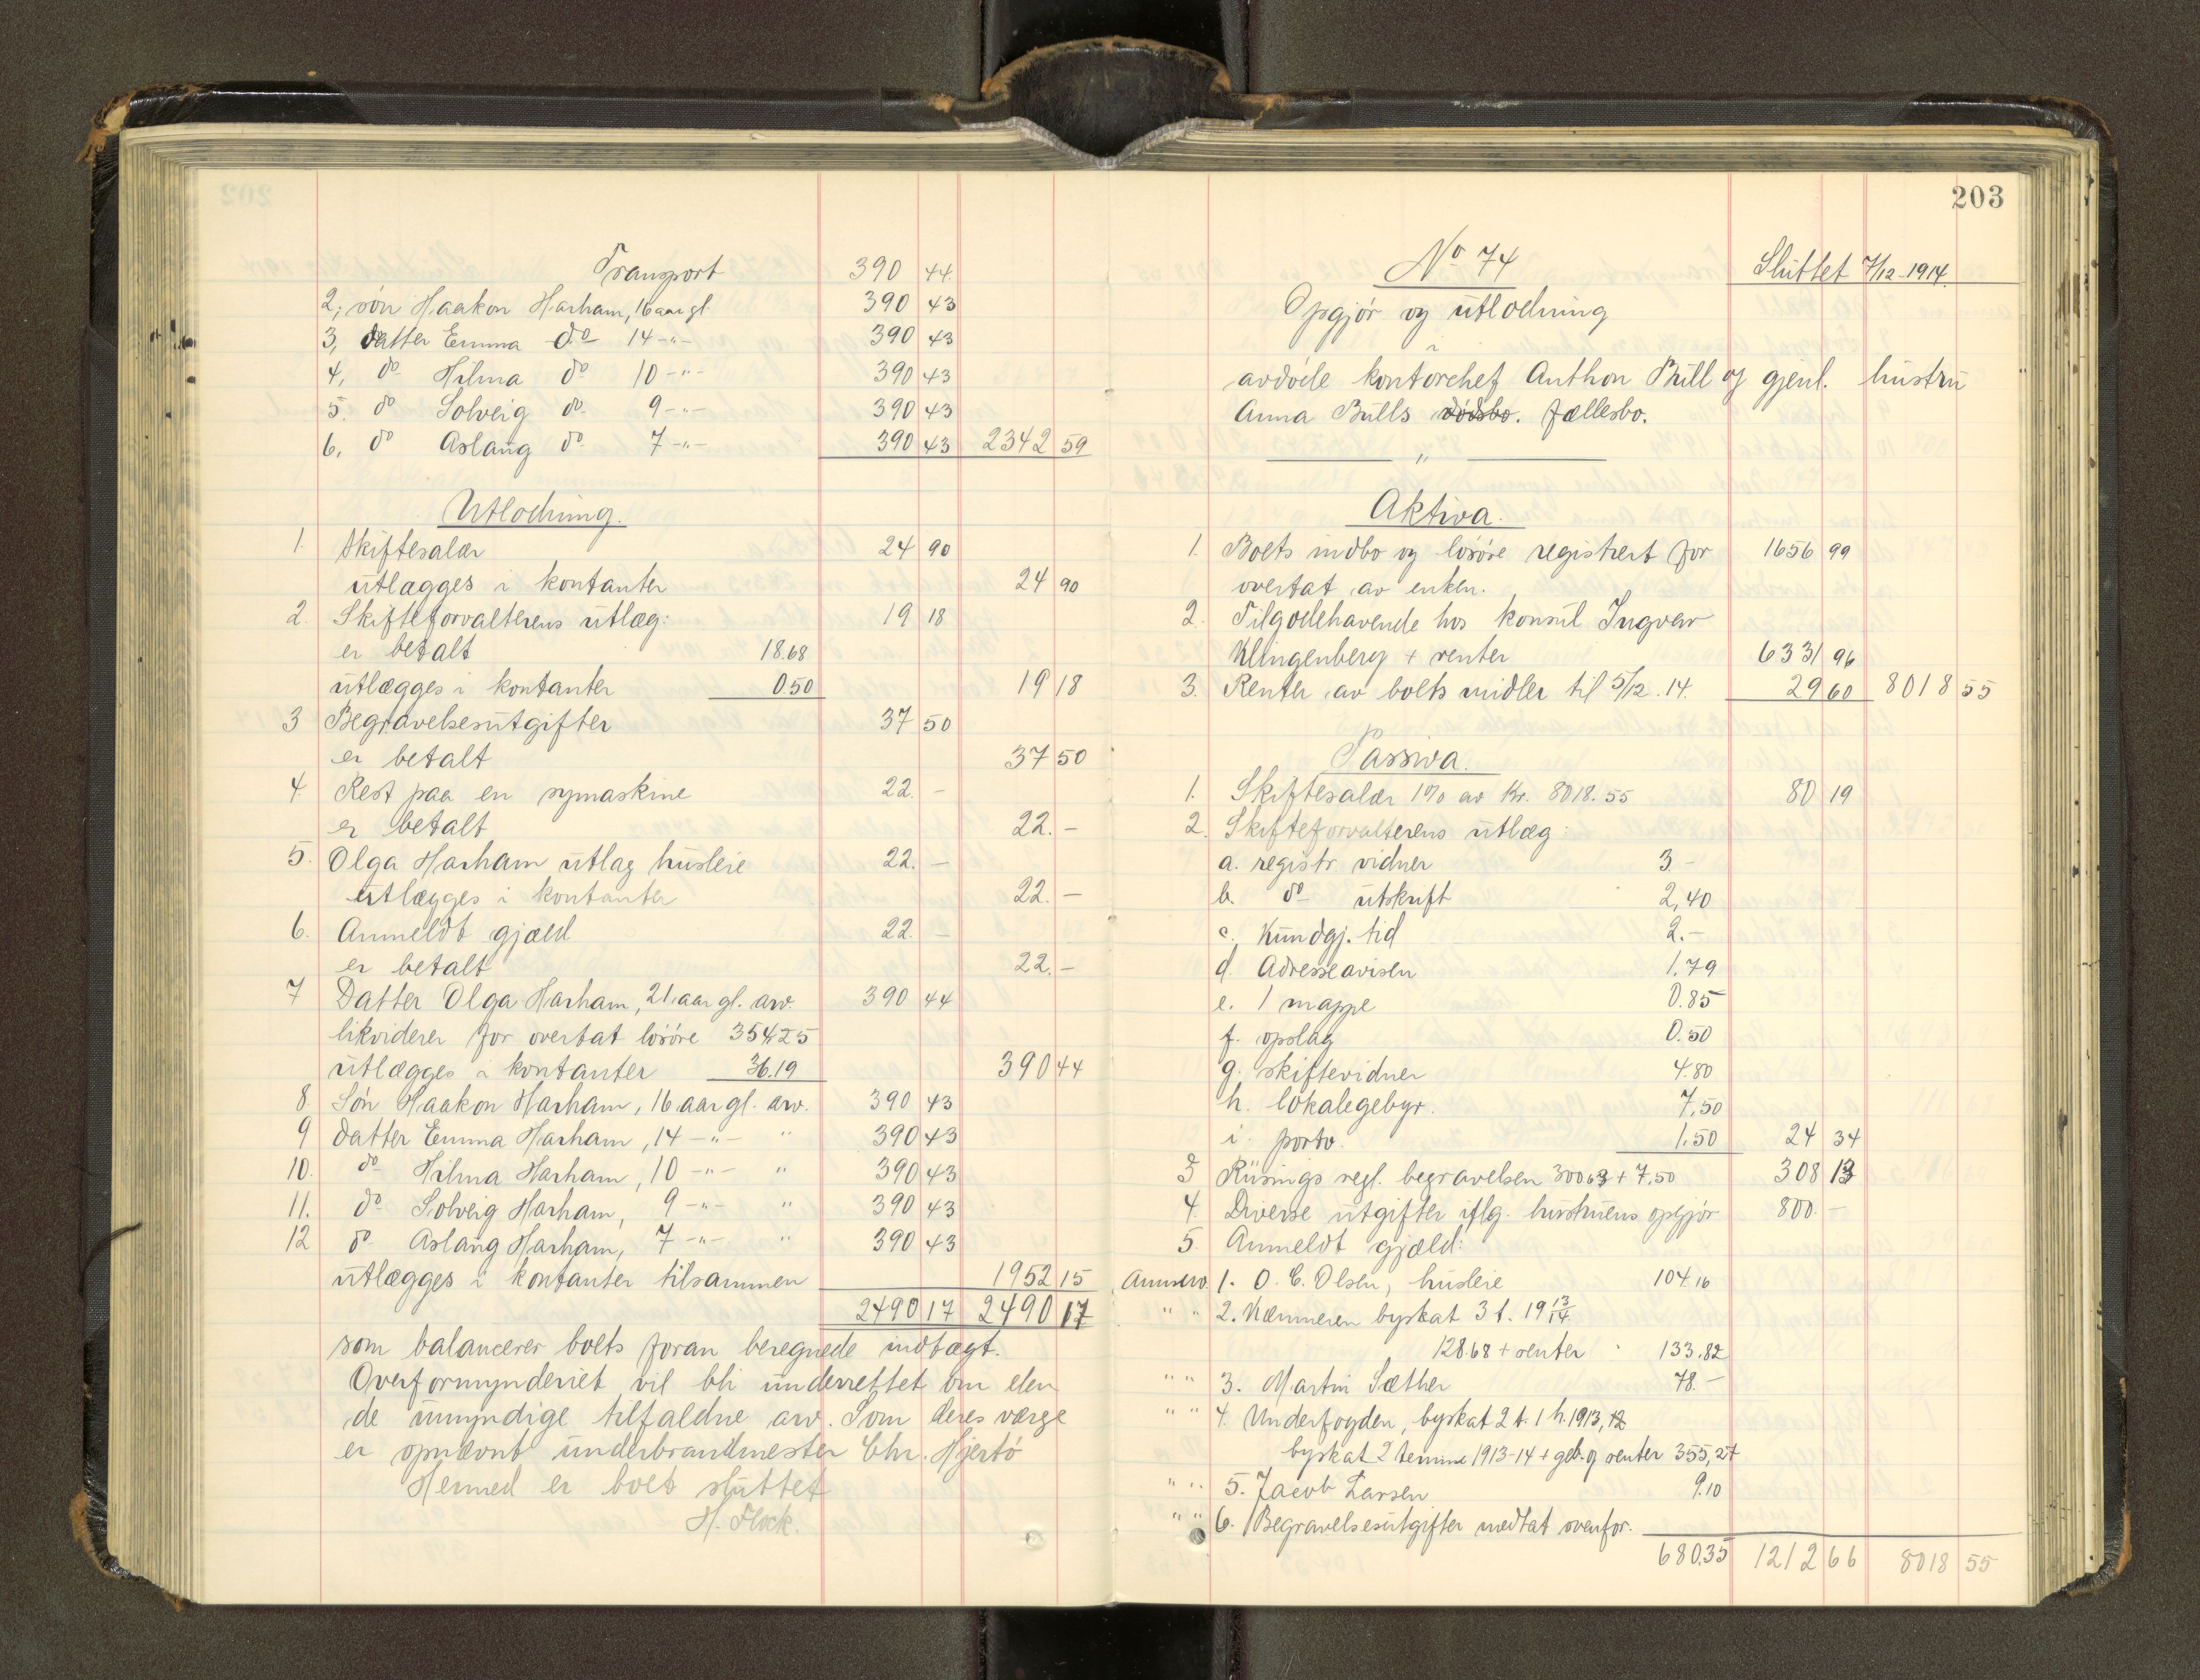 Transport 390 44
2, søn Haakon Harham, 16 aar gl. 390 43
3, datter Emma do 14 -"- 390 43
4, do Hilma do 10 -"- 390 43
5. do Solveig do 9 -"- 390 43
6, do Aslaug do 7 -"- 390 43 2342 59
Utlodning.
1. Skiftesalær 24 90
utlægges i kontanter 24 90
2. Skifteforvalterens utlæg: 19 18
er betalt 18.68
utlægges i kontanter 0.50 19 18
3 Begravelsesutgifter 37 50
er betalt 37 50
4. Rest paa en symaskine 22. -
er betalt 22. -
5. Olga Harham utlag husleie 22. -
utlægges i kontanter 22. -
6. Anmeldt gjæld 22. -
er betalt 22. -
7 Datter Olga Harham, 21 aar gl. arv. 390 44
likviderer for overtat løsøre 354,25
utlægges i kontanter 36.19 390 44
8. Søn Haakon Harham, 16 aar gl. arv. 390 43
9 datter Emma Harham, 14 -"- " 390 43
10. do Hilma Harham, 10 -"- " 390 43
11. do Solveig Harham, 9 -"- " 390 43
12 do Aslaug Harham, 7 -"- " 390 43
utlægges i kontanter tilsammen 1952 15
2490 17 2490 17
som balancerer boets foran beregnede indtægt.
Overformynderiet vil bli underrettet om den
de umyndige tilfaldne arv. Som deres værge
er opnævnt underbrandmester Chr. Hjertø
Hermed er boet sluttet
H. Flock.
203
No 74 Sluttet 7/12-1914.
Opgjør og utlodning
i
avdøde kontorchef Anthon Bull og gjenl. hustru
Anna Bulls dødsbo. fællesbo.
"
Aktiva.
1. Boets indbo og løsøre registrert for 1656 99
overtat av enken.
2. Tilgodehavende hos konsul Ingvar
Klingenberg + renter 6331 96
3. Renter av boets midler til 5/12.14. 29 60 8018 55
Passiva.
1. Skiftesalær 1% av Kr. 8018.55 80 19
2. Skifteforvalterens utlæg:
a. registr. vidner 3 -
b. do utskrift 2,40
c. Kundgj. tid 2. -
d. Adresseavisen 1.79
e. 1 mappe 0.85
f. opslag 0.50
g. skiftevidner 4.80
h. lokalegebyr. 7,50
i. porto. 1.50 24 34
3 Rüsings regl. begravelsen 300 63 + 7.50 308 13
4. Diverse utgifter iflg. hustruens opgjør 800. -
5. Anmeldt gjæld:
1. O. C. Olsen, husleie 104.16
" " 2. Kæmneren byskat 3 t. 19 13/14
128.68 + renter 133.82
" " 3. Martin Sæther 78. -
" " 4. Underfogden, byskat 2 t. 1 h. 1913, 12
byskat 2 termine 1913-14 + geb. og renter 355,27
" " 5. Jacob Larsen 9.10
" " 6. Begravelsesutgifter medtat ovenfor.
680.35 1212 66 8018 55